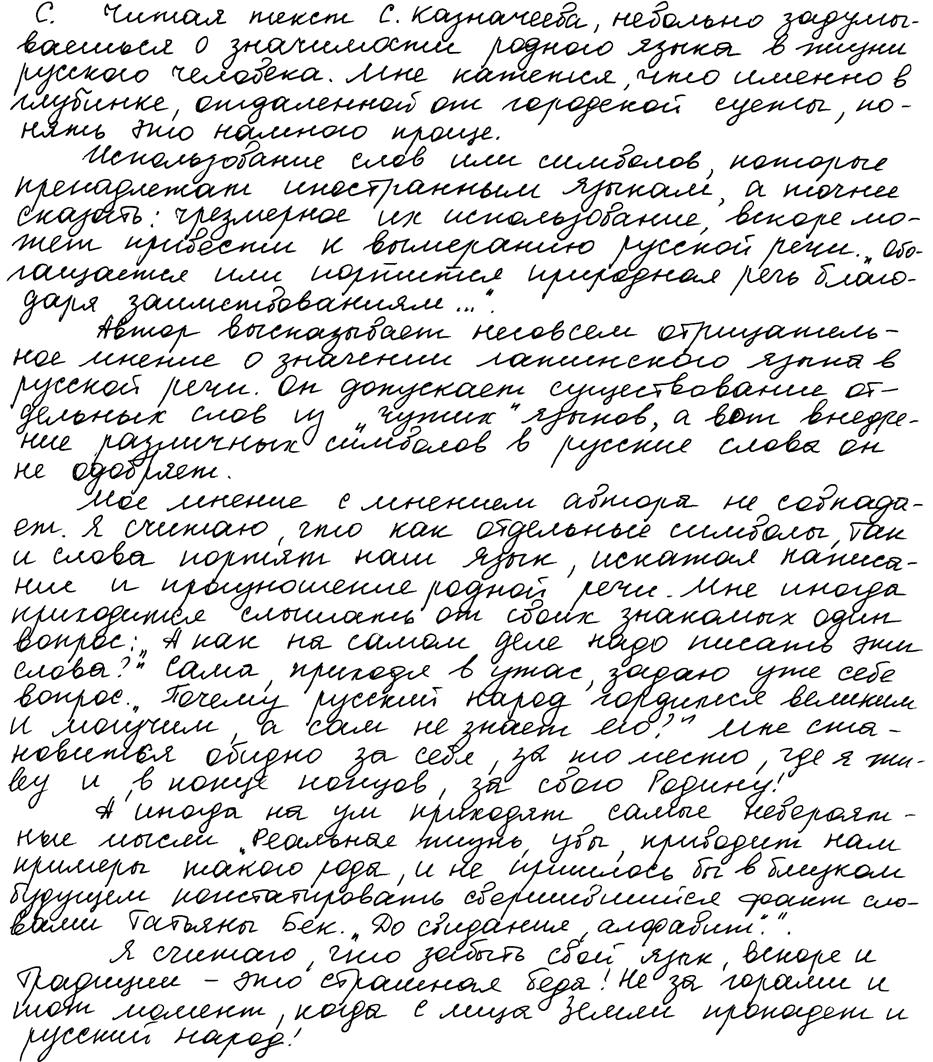 С. Читая текст С. Казначеева, невольно задумы-
ваешься о значимости родного языка в жизни
русского человека. Мне кажется, что именно в
глубинке, отдаленной от городской суеты, по-
нять это намного проще.
Использование слов или символов, которые
пренадлежат иностранным языкам, а точнее
сказать: чрезмерное их использование, вскоре мо-
жет привести к вымеранию русской речи. „Обо-
гащается или портится природная речь благо-
даря заимствованиям..."
Автор высказывает несовсем отрицатель-
ное мнение о значении латинского языка в
русской речи. Он допускает существование от-
дельных слов из „чужих" языков, а вот внедре-
ние различных символов в русские слова он
не одобряет.
Мое мнение с мнением автора не совпада-
ет. Я считаю, что как отдельные символы, так
и слова портят наш язык, искажая написа-
ние и произношение родной речи. Мне иногда
приходится слышать от своих знакомых один
вопрос: „А как на самом деле надо писать эти
слова?" Сама, приходя в ужас, задаю уже себе
вопрос: „Почему русский народ гордится великим
и могучим, а сам не знает его?" Мне ста-
новиться обидно за себя, за то место, где я жи-
ву и, в конце концов, за свою Родину!
А иногда на ум приходят самые невероят-
ные мысли „Реальная жизнь, увы, приводит нам
примеры такого рода, и не пришлось бы в близком
будущем констатировать свершившийся факт сло-
вами Татьяны Бек: „До свидания, алфавит"."
Я считаю, что забыть свой язык, вскоре и
традиции – это страшная беда! Не за горами и
тот момент, когда с лица Земли пропадет и
русский народ!